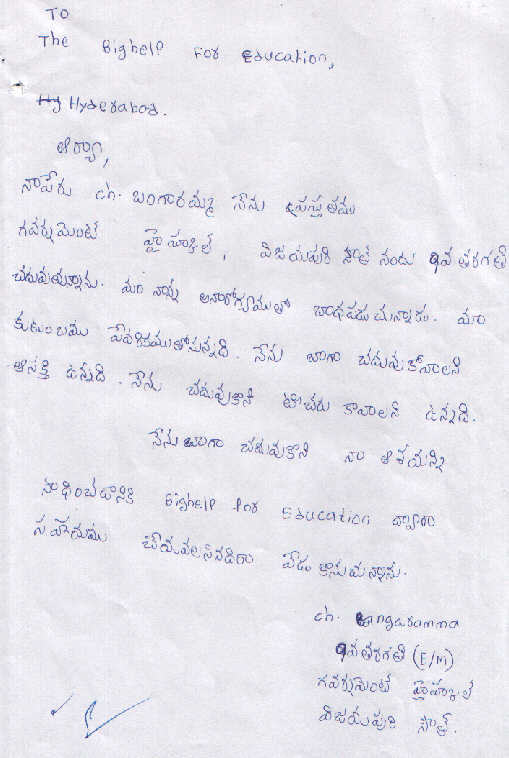 TO
The Bighelp For Education,
Hy Hyderabad.
ఆర్యా,
నాపేరు ch. బంగారమ్మ నేను ప్రస్తుతము
గవర్నమెంట్ హైస్కూల్, విజయపురి సౌత్ నందు 9వ తరగతి
చదువుతున్నాను. మా నాన్న అనారోగ్యముతో బాధపడుచున్నారు. మా
కుటుంబము పేదరికముతోవున్నది. నేను బాగా చదువుకోవాలని
ఆసక్తి ఉన్నది. నేను చదువుకొని టీచరు కావాలని ఉన్నది.
నేను బాగా చదువుకొని నా ఆశయాన్ని
సాధించటానికి Bighelp for Education ద్వారా
సహాయము చేయవలసినదిగా వేడుకొనుచున్నాను.
ch. Bangaramma
9వ తరగతి (E/M)
గవర్నమెంట్ హైస్కూల్
విజయపురి సౌత్.